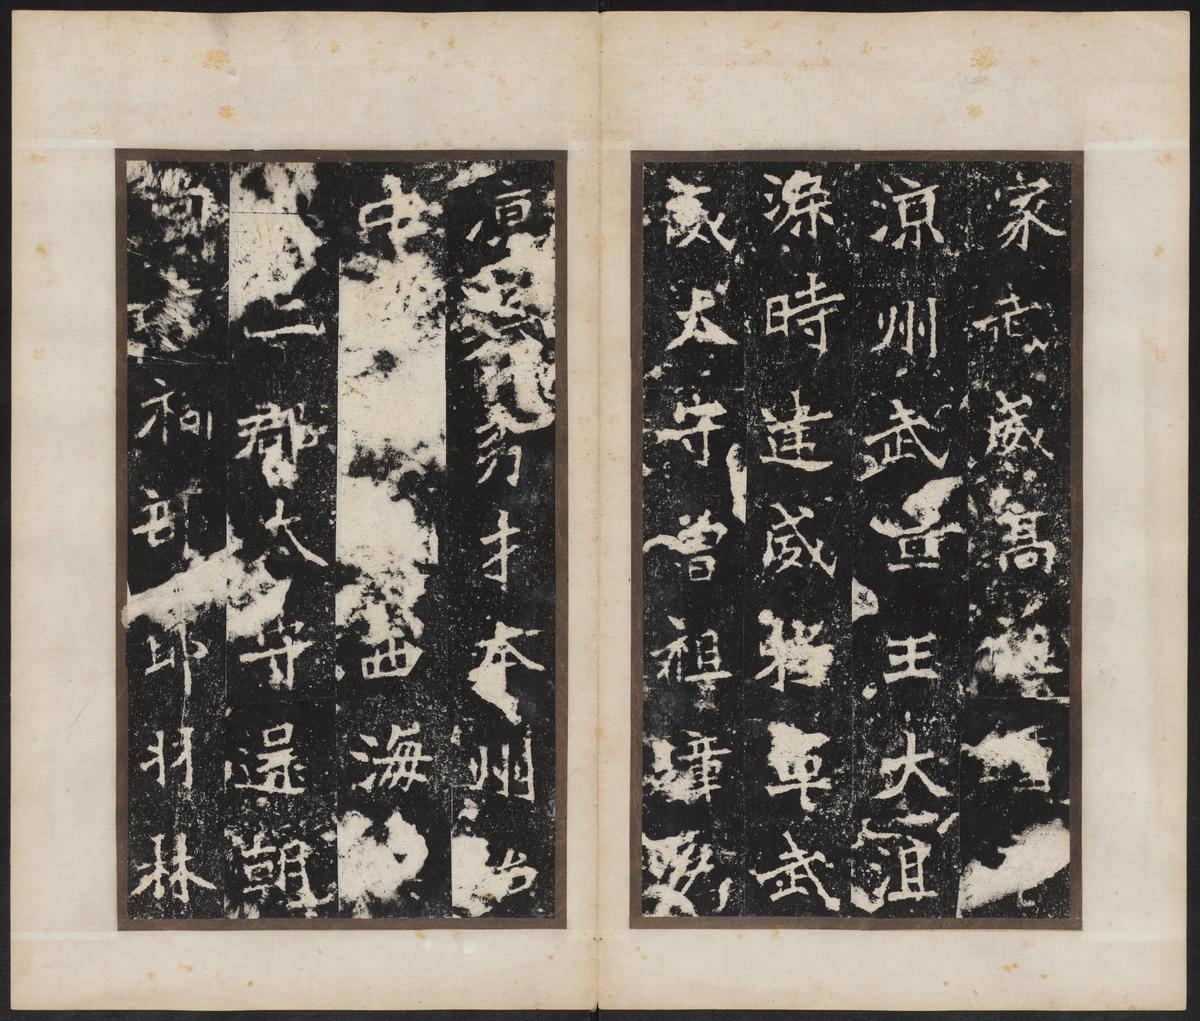 家威高祖
涼州武宣王大沮
渠時建威將軍武
威太守曾祖璋
涼舉秀才本州治
中西海
二郡太守還朝
祠部郎羽林